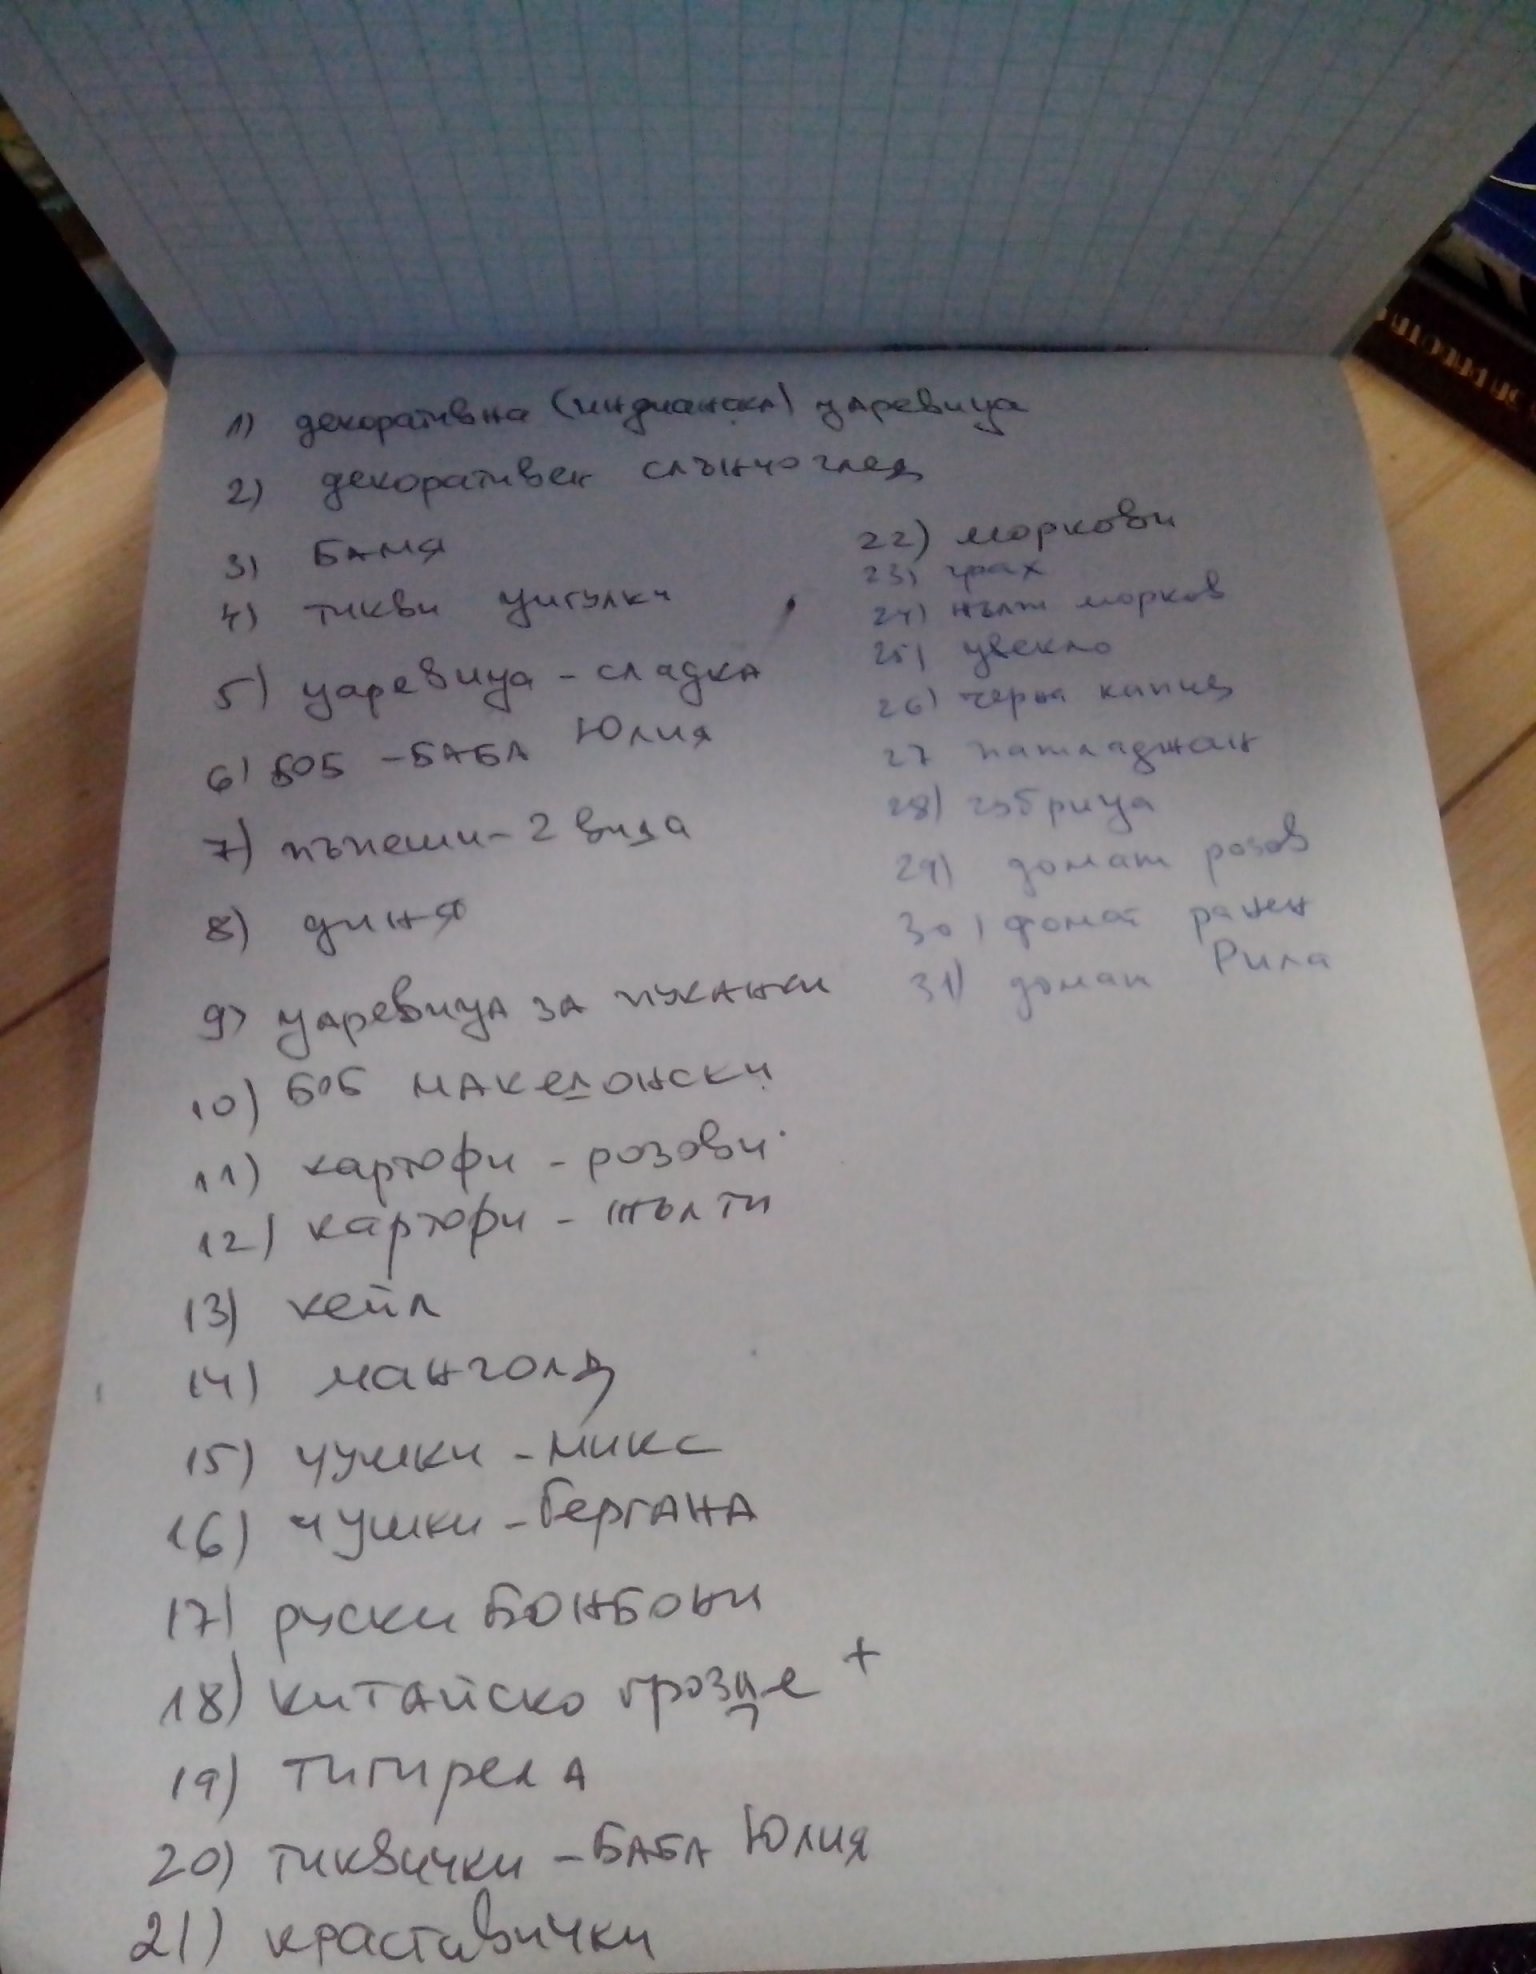 1) декоративна (индианска) царевица
2) декоративен слънчоглед
3) БАМЯ
4) тикви цигулки
5) царевица - сладка
6) БОБ - БАБА Юлия
7) пъпеши - 2 вида
8) диня
9) царевица за пуканки
10) боб македонски
11) картофи - розови
12) картофи - жълти
13) кейл
14) манголд
15) чушки - микс
16) чушки - Бергана
17) руски бонбони
18) китайско грозде +
19) тигирела
20) тиквички - БАБА Юлия
21) краставички
22) моркови
23) грах
24) жълт морков
25) цвекло
26) черен кипис
27 патладжан
28) чубрица
29) домат розов
30) домат ранен
31) домат Рила